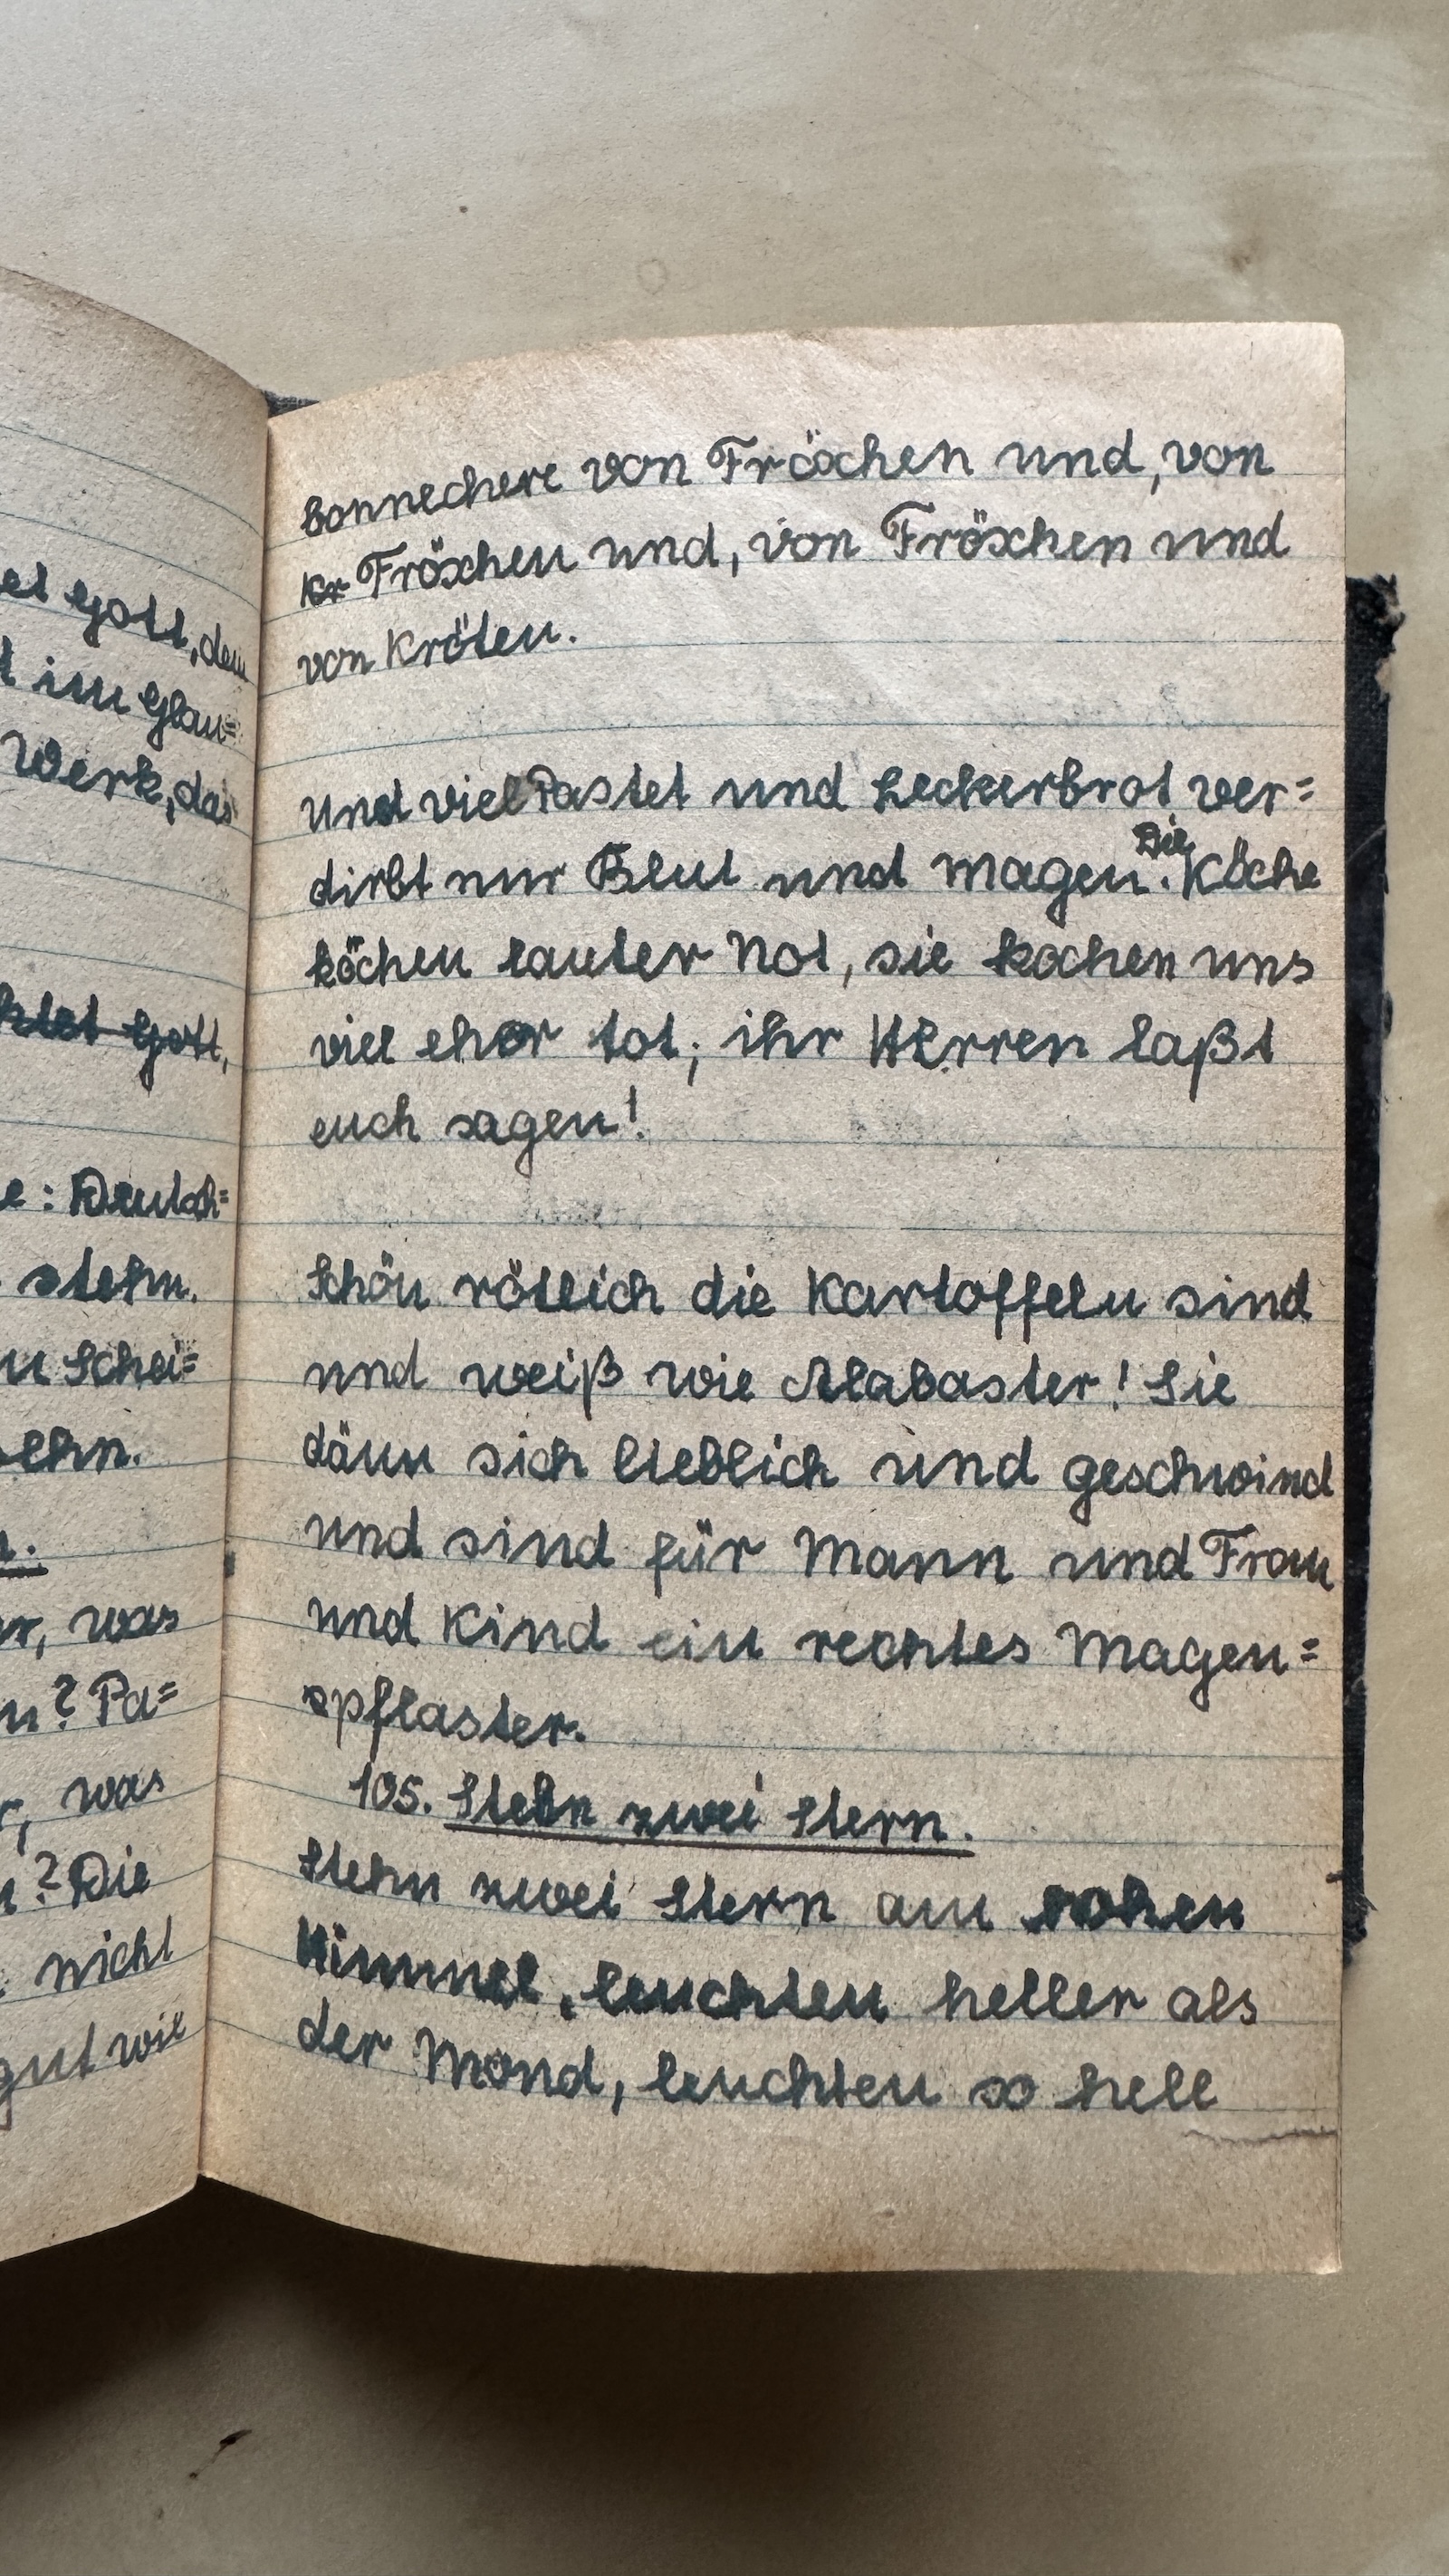 et Gott, dem
t im Glau=
Werk, das
ktet Gott,
e: Deutsch=
stehn.
n Schei=
sehn.
n.
er, was
n? Pa=
r, was
n? Die
nicht
gut wie
bonnechere von Fröschen und, von
Kr Fröschen und, von Fröschen und
von Kröten.
und viel Pastet und Leckerbrot ver=
dirbt nur Blut und Magen. Die Köche
köchen lauter Not, sie kochen uns
viel eher tot; ihr Herren laßt
euch sagen!
Schön rötlich die Kartoffeln sind
und weiß wie Alabaster! Sie
däun sich lieblich und geschwind
und sind für Mann und Frau
und Kind ein rechtes Magen=
spflaster.
105. Stehn zwei Stern.
Stehn zwei Stern am hohen
Himmel, leuchten heller als
der Mond, leuchten so hell